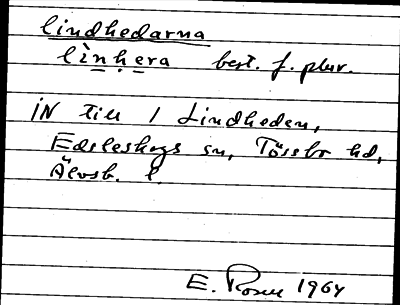 lindhedarna
lìnḥera best. f. plur.
IN till 1 Lindheden,
Edsleskogs sn, Tössbo hd,
Älvsb. l.
E. Rosen 1964